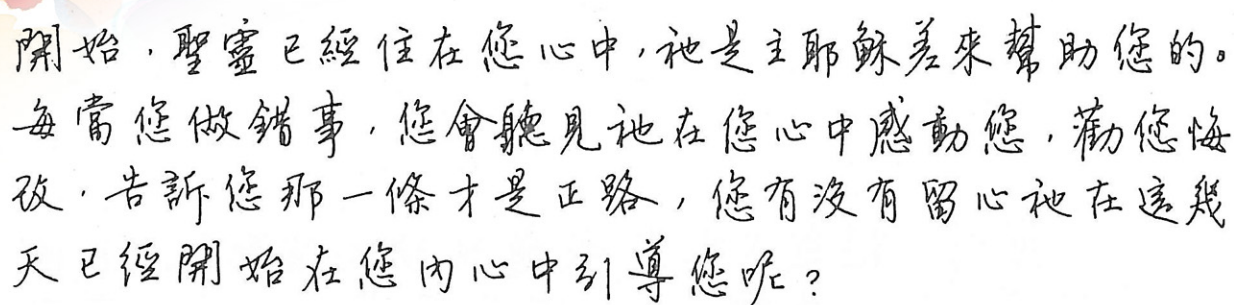 開始，聖靈已經住在您心中，祂是主耶穌差來幫助您的。
每當您做錯事，您會聽見祂在您心中感動您，勸您悔
改，告訴您那一條才是正路，您有沒有留心祂在這幾
天已經開始在您內心中引導您呢？